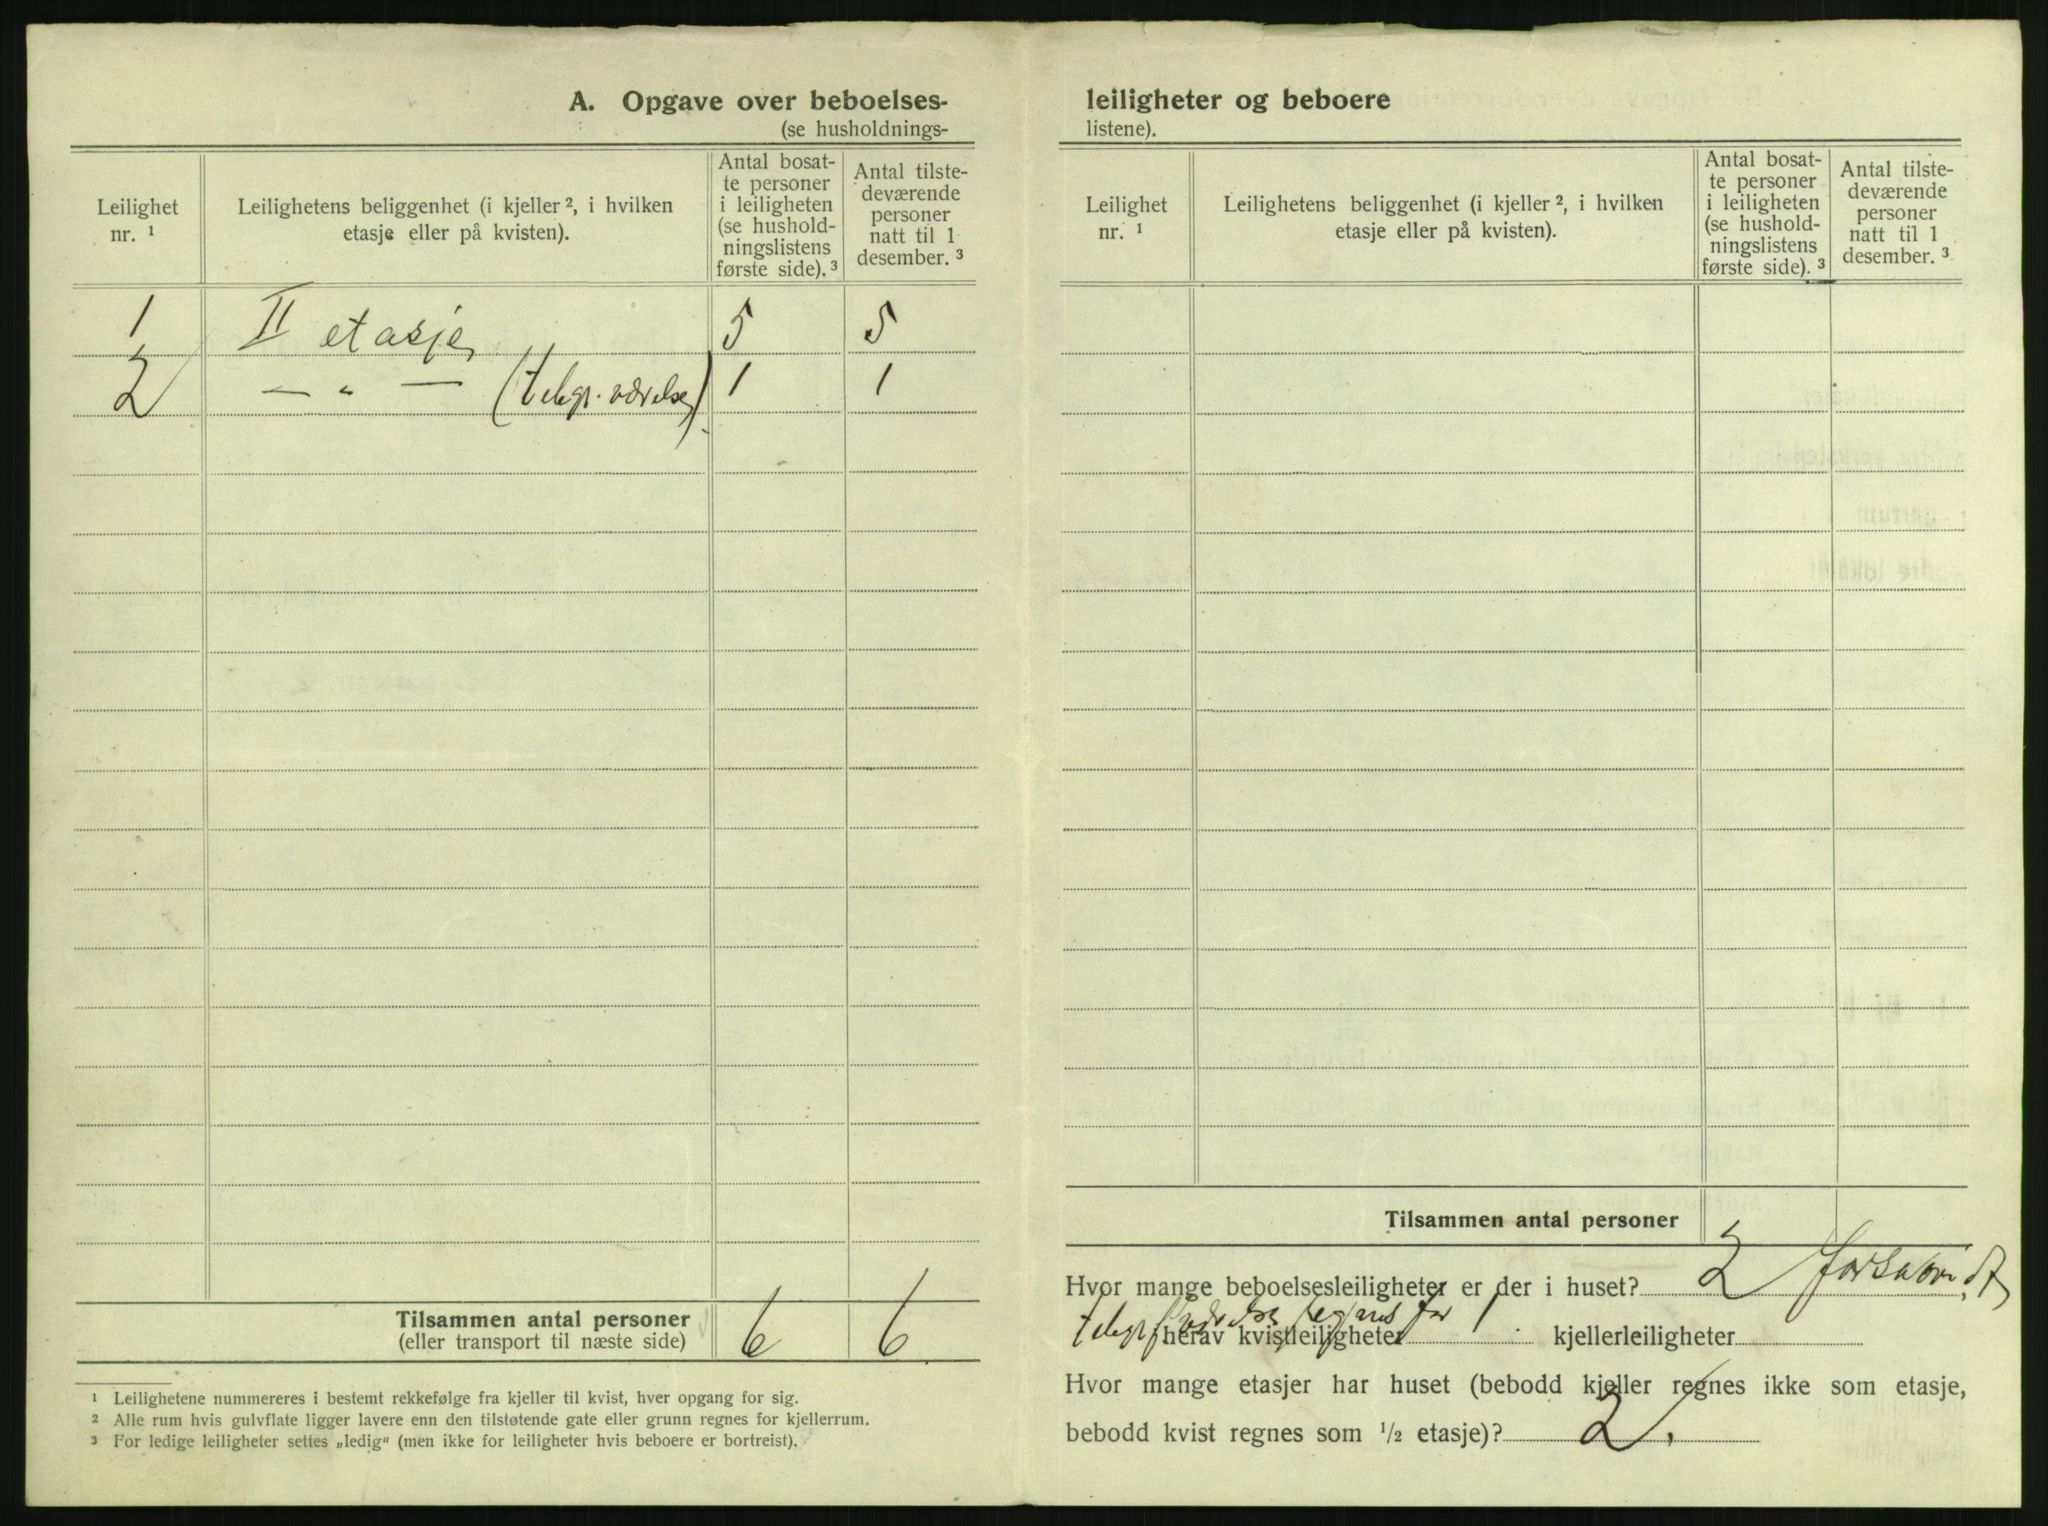 A. Opgave over beboelses-
(se husholdnings-
Leilighet
nr. ¹
Leilighetens beliggenhet (i kjeller ², i hvilken
etasje eller på kvisten).
Antal bosat-
te personer
i leiligheten
(se hushold-
ningslistens
første side). ³
Antal tilste-
deværende
personer
natt til 1
desember. ³
1 II etasje, 5 5
2 — „ — (telegr. værelse). 1 1
Tilsammen antal personer
(eller transport til næste side) 6 6
¹ Leilighetene nummereres i bestemt rekkefølge fra kjeller til kvist, hver opgang for sig.
² Alle rum hvis gulvflate ligger lavere enn den tilstøtende gate eller grunn regnes for kjellerrum.
³ For ledige leiligheter settes „ledig“ (men ikke for leiligheter hvis beboere er bortreist).
leiligheter og beboere
listene).
Leilighet
nr. ¹
Leilighetens beliggenhet (i kjeller ², i hvilken
etasje eller på kvisten).
Antal bosat-
te personer
i leiligheten
(se hushold-
ningslistens
første side). ³
Antal tilste-
deværende
personer
natt til 1
desember. ³
Tilsammen antal personer
Hvor mange beboelsesleiligheter er der i huset? 2 forsåvidt
telegrafværelse regnes for 1.
herav kvistleiligheter kjellerleiligheter
Hvor mange etasjer har huset (bebodd kjeller regnes ikke som etasje,
bebodd kvist regnes som ½ etasje)? 2.